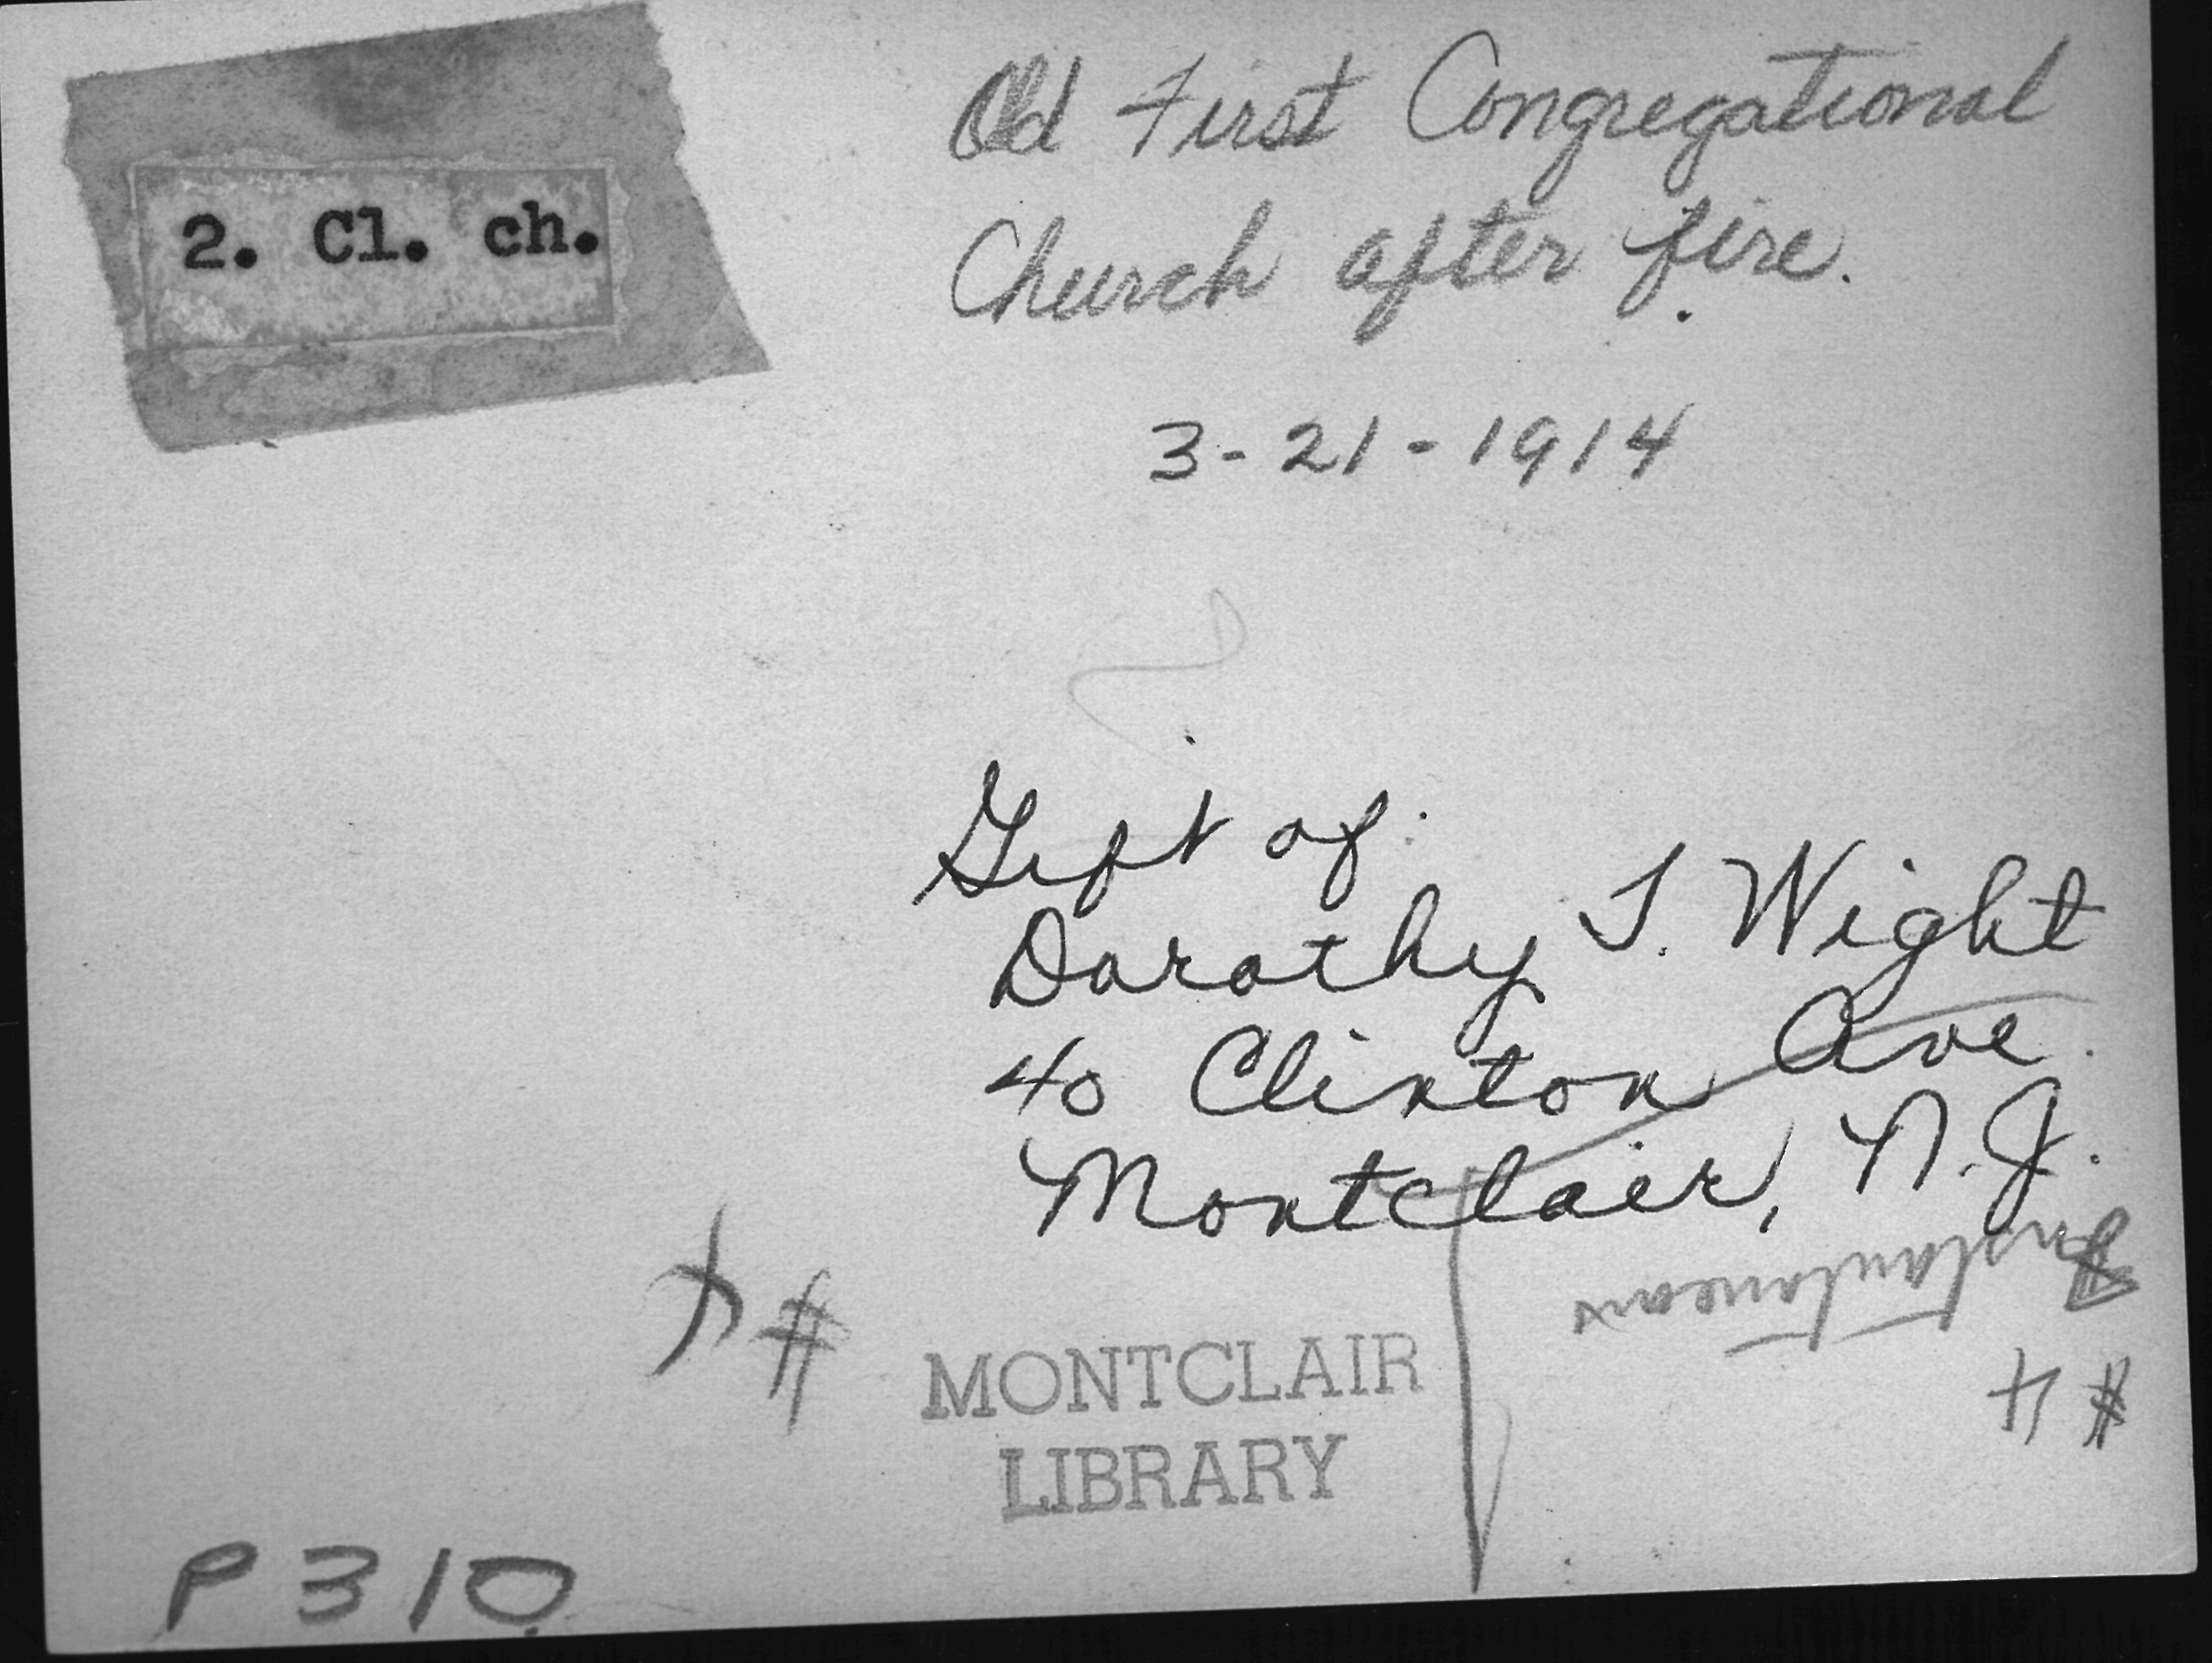 2. Cl. ch.
Old First Congregational
Church after fire.
3-21-1914
Gift of
Dorothy T. Wight
40 Clinton Ave.
Montclair, N.J.
# 4
MONTCLAIR
LIBRARY
# 4
Instantaneous
P310